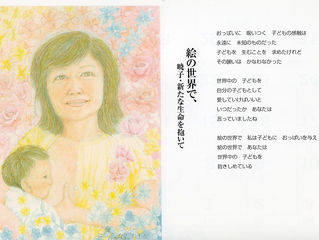 絵の世界で、
暁子・新たな生命を抱いて
おっぱいに　吸いつく　子どもの感触は
永遠に　未知のものだった
子どもを　生むことを　求めたけれど
その願いは　かなわなかった
世界中の　子どもを
自分の子どもとして
愛していけばいいと
いつだったか　あなたは
言っていましたね
絵の世界で　私は子どもに　おっぱいを与え
絵の世界で　あなたは
世界中の　子どもを
抱きしめている